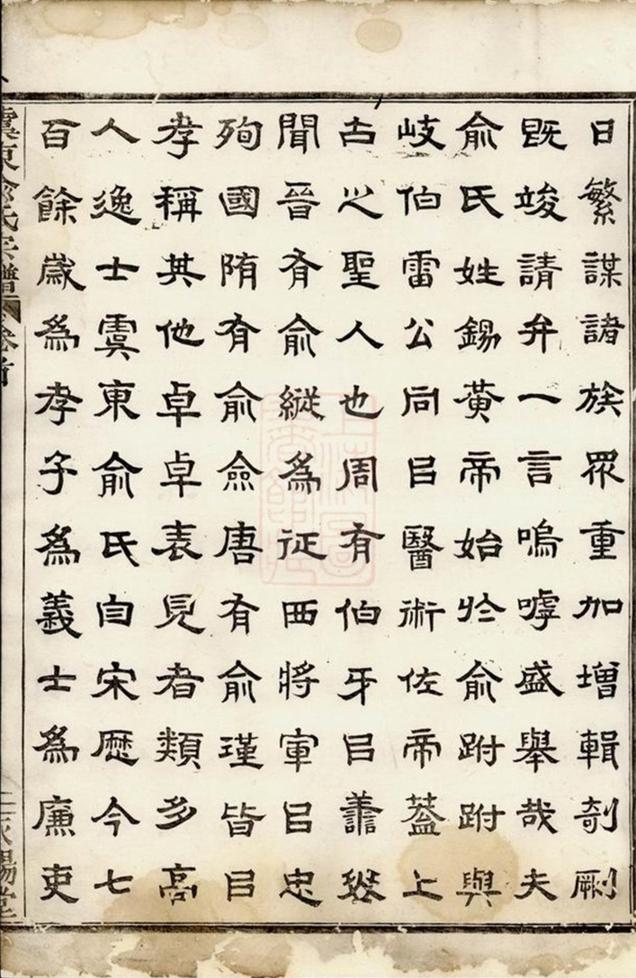 日繁謀諸族眾重加增輯剞劂
既竣請弁一言嗚嘑盛舉哉夫
俞氏姓錫黃帝始於俞跗跗與
岐伯雷公同㠯醫術佐帝葢上
古之聖人也周有伯牙㠯善琴
聞晉有俞縱為征西將軍㠯忠
殉國隋有俞僉唐有俞瑾皆㠯
孝稱其他卓卓表見者類多高
人逸士虞東俞氏自宋歷今七
百餘歲為孝子為義士為廉吏
虞東俞氏宗譜 卷首